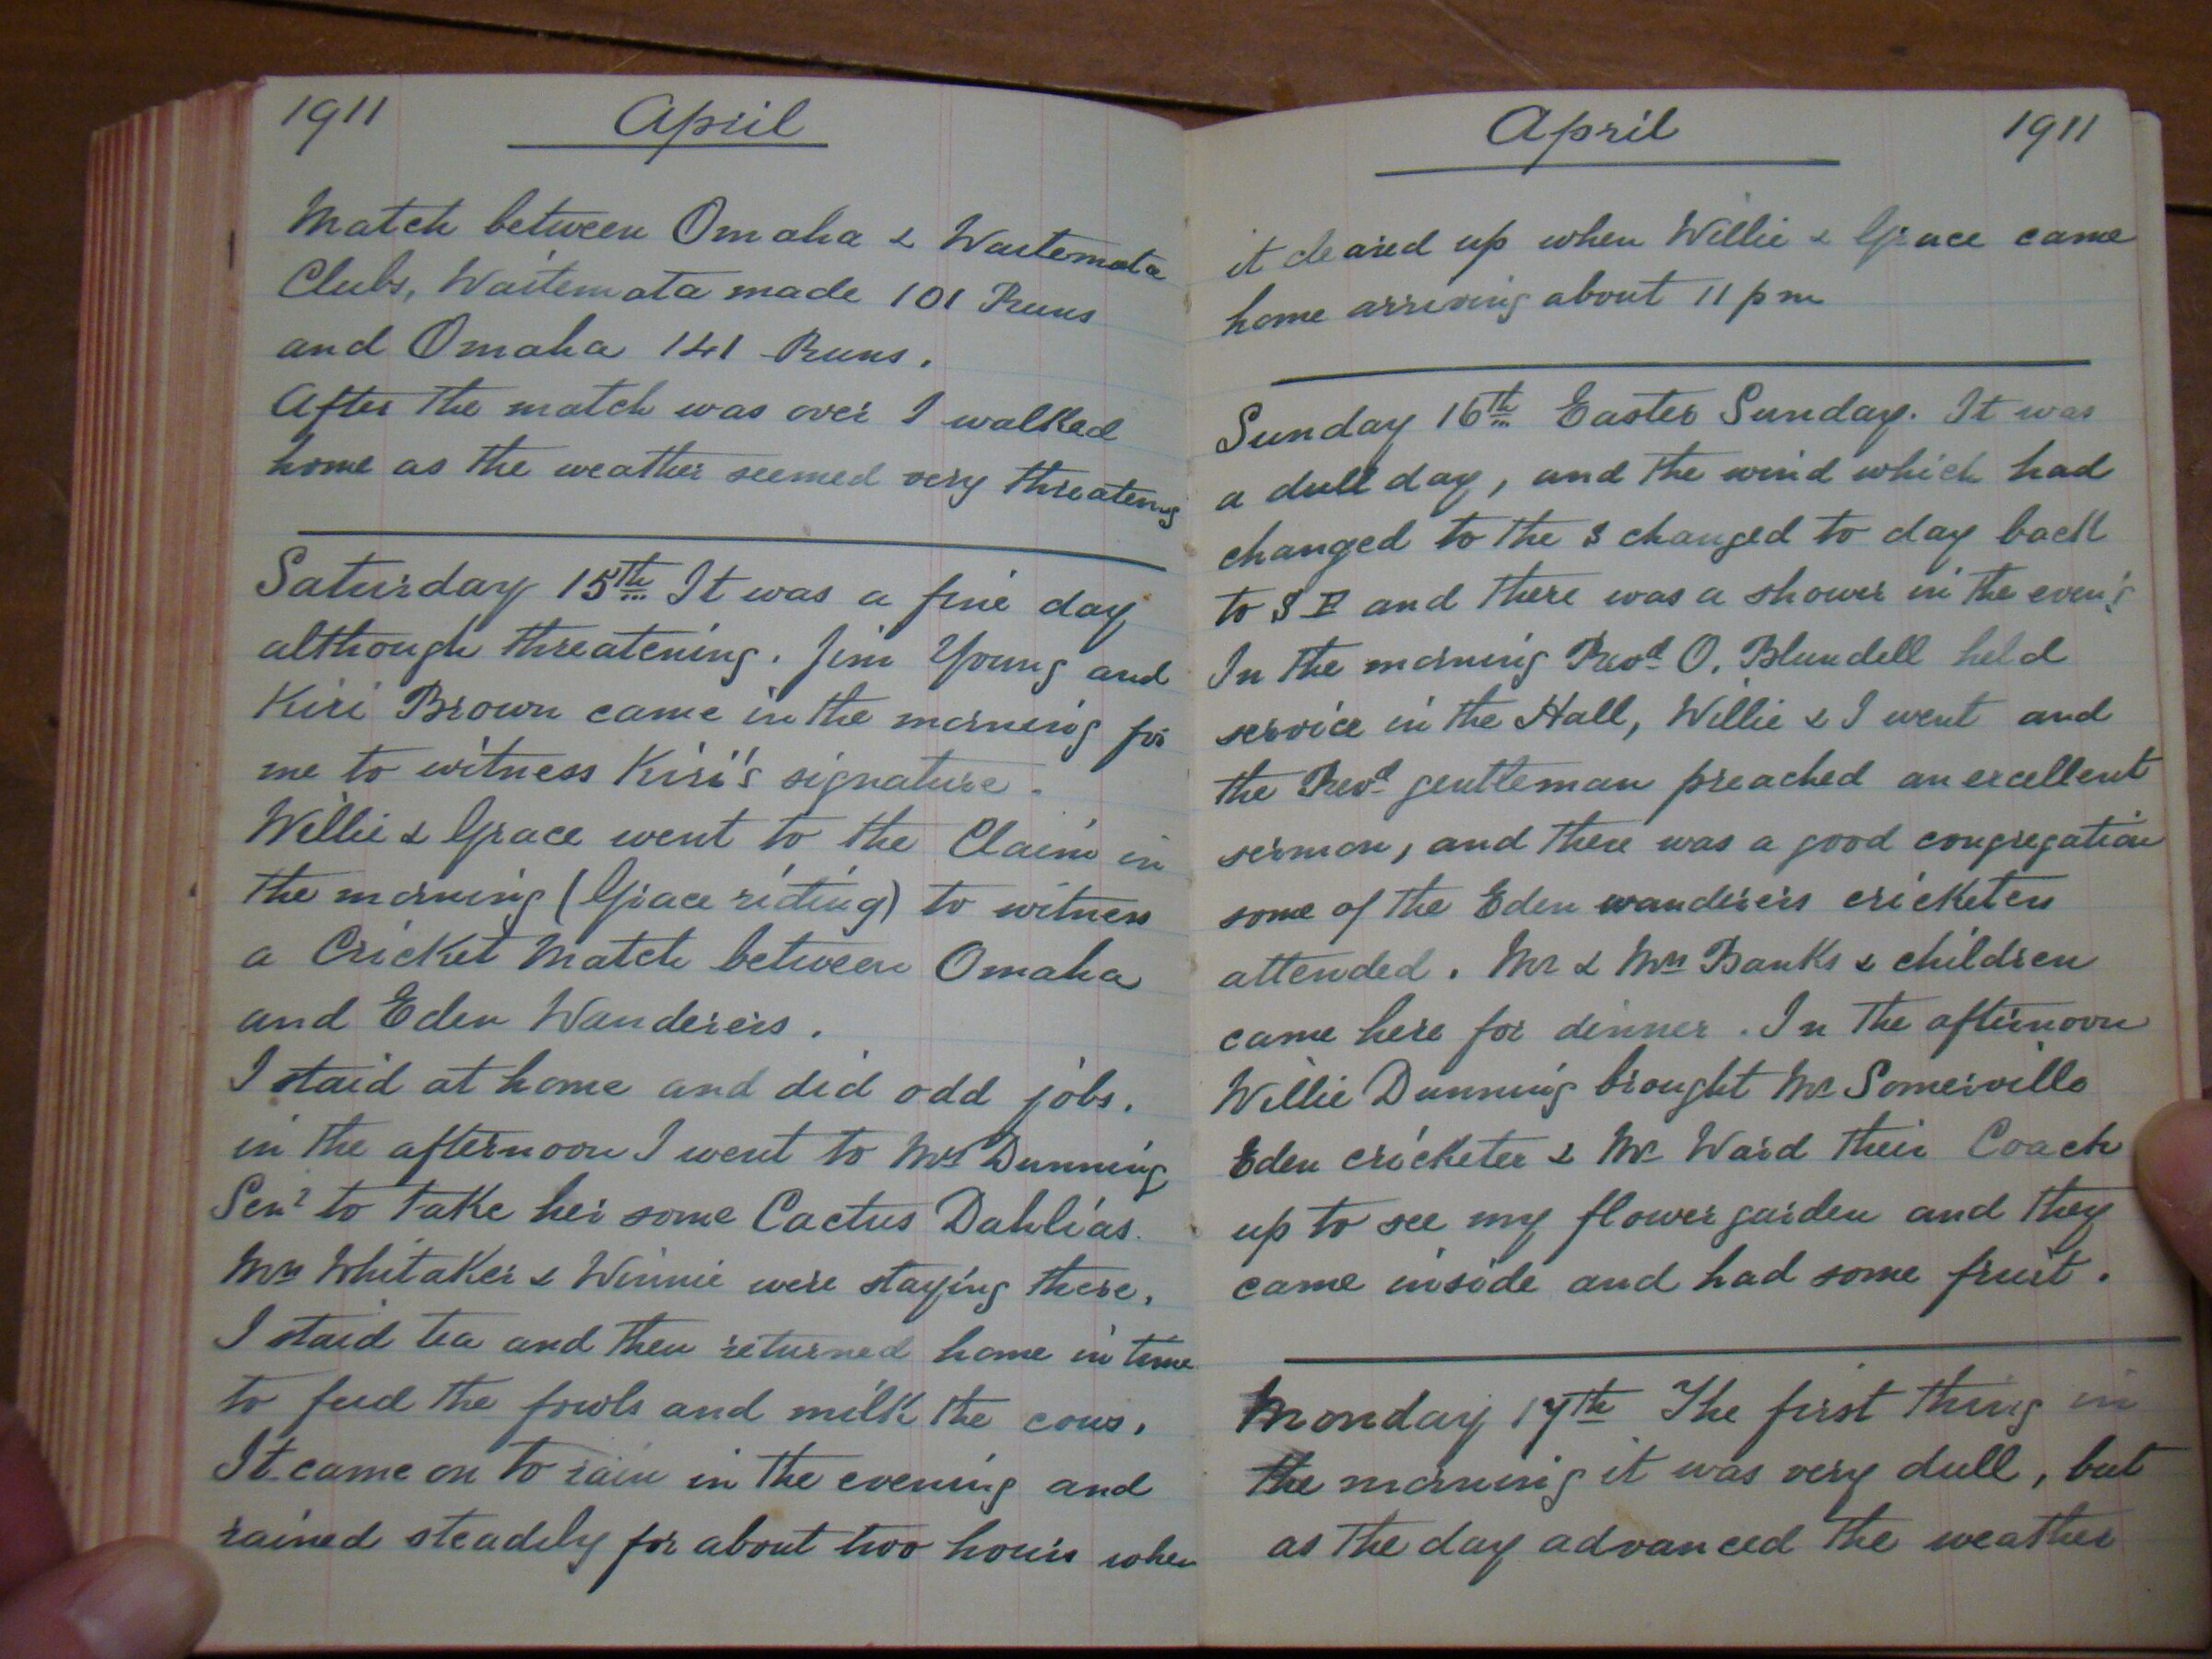 1911 April
Match between Omaha & Waitemata
Clubs, Waitemata made 101 Runs
and Omaha 141 Runs.
After the match was over I walked
home as the weather seemed very threatening
Saturday 15th It was a fine day
although threatening. Jim Young and
Kiri Brown came in the morning for
me to witness Kiri's signature.
Willie & Grace went to the Claim in
the morning (Grace riding) to witness
a Cricket Match between Omaha
and Eden Wanderers.
I staid at home and did odd jobs.
in the afternoon I went to Mrs Dunning
Senr to take her some Cactus Dahlias.
Mrs Whitaker & Winnie were staying there.
I staid tea and then returned home in time
to feed the fowls and milk the cows.
It came on to rain in the evening and
rained steadily for about two hours when
April 1911
it cleared up when Willie & Grace came
home arriving about 11 pm
Sunday 16th Easter Sunday. It was
a dull day, and the wind which had
changed to the S changed to day back
to S E and there was a shower in the eveng
In the morning Revd O. Blundell held
service in the Hall, Willie & I went and
the Revd gentleman preached an excellent
sermon, and there was a good congregation
some of the Eden wanderers cricketers
attended. Mr & Mrs Banks & children
came here for dinner. In the afternoon
Willie Dunning brought Mr Somerville
Eden cricketer & Mr Ward their Coach
up to see my flower garden and they
came inside and had some fruit.
Monday 17th The first thing in
the morning it was very dull, but
as the day advanced the weather